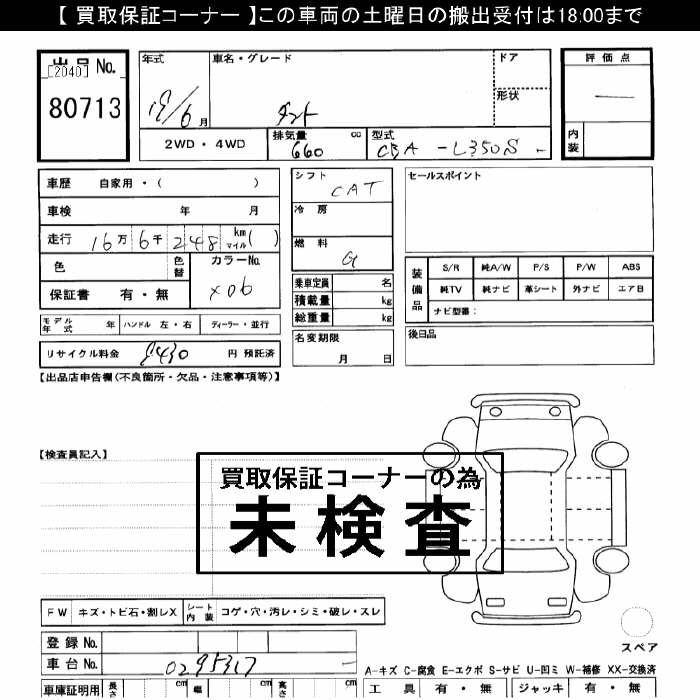 【 買取保証コーナー 】この車両の土曜日の搬出受付は18:00まで
出品 No.
[2040]
80713
年式
19/6 月
車名・グレード
タント
ドア
形状
2WD・4WD
排気量 cc
660
型式
CBA -L350S -
評価点
—
内装
車歴 自家用・( )
車検 年 月
走行 16万 6千 248 km マイル ( )
色
色替
カラーNo.
X06
保証書 有・無
シフト
CAT
冷房
燃料
G
乗車定員 名
積載量 kg
総重量 kg
セールスポイント
装備品
S/R 純A/W P/S P/W ABS
純TV 純ナビ 革シート 外ナビ エア日
ナビ型番:
モデル年式 年 ハンドル 左・右 ディーラー・並行
名変期限
月 日
後日品
リサイクル料金 8430 円 預託済
【出品店申告欄(不良箇所・欠品・注意事項等)】
【検査員記入】
買取保証コーナーの為
未検査
FW キズ・トビ石・割レX シート内装 コゲ・穴・汚レ・シミ・破レ・スレ
登録 No.
車台 No. 0295317
スペア
A-キズ C-腐食 E-エクボ S-サビ U-凹ミ W-補修 XX-交換済
車庫証明用 長さ cm 幅 cm 高さ cm
工具 有・無 ジャッキ 有・無